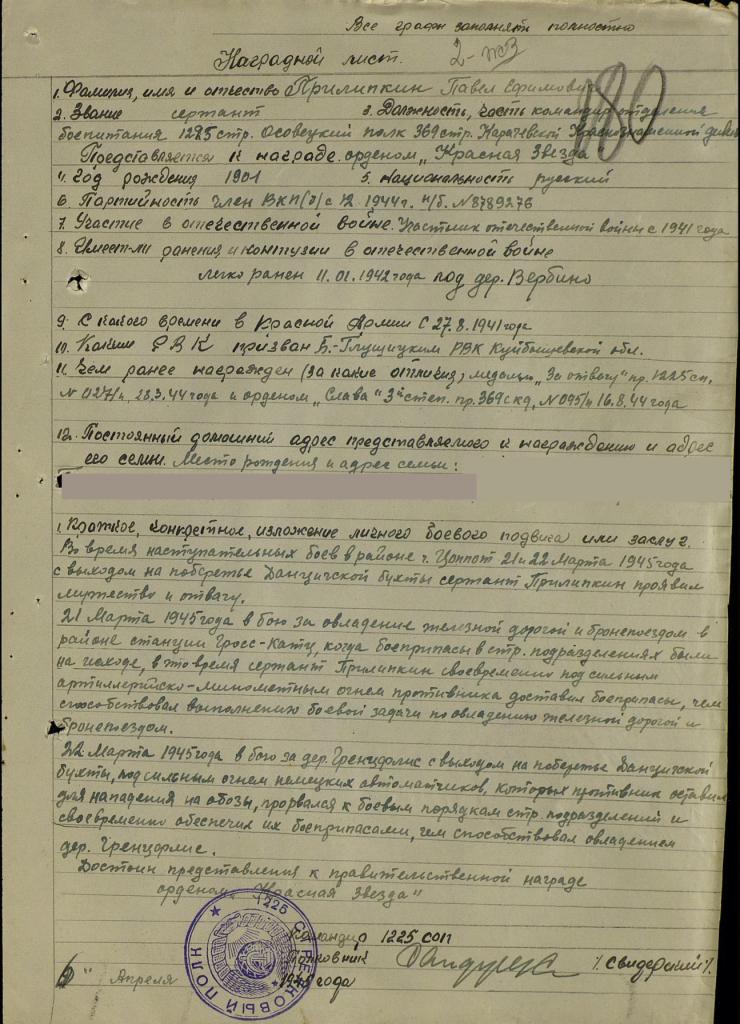 Все графы заполнять полностью
Наградной лист.
2-
180
1. Фамилия, имя и отчество Прилипкин Павел Ефимович
2. Звание сержант 3. Должность, часть командир отделения
боепитания 1225 стр. Осовецкий полк 369 стр. Карачевской Краснознаменной
Представляется к награде орденом „Красная Звезда"
4. Год рождения 1901 5. Национальность русский
6. Партийность член ВКП(б) с 12.1944г. п/б. №8789276
7. Участие в отечественной войне. Участник отечественной войны с 1941 года
8. Имеет-ли ранения и контузии в отечественной войне
легко ранен 11.01.1942 года под дер. Вербино
9. С какого времени в Красной Армии с 27.8.1941 года
10. Каким РВК призван Б.-Глущицким РВК Куйбышевской обл.
11. Чем ранее награжден (за какие отличия) медалью „За отвагу" пр. 1225 сп.
№ 027/н, 28.3.44 года и орденом „Слава" 3й степ. пр. 369 скд, №095/н 16.8.44 года
12. Постоянный домашний адрес представляемого к награждению и адрес
его семьи. Место рождения и адрес семьи:
1. Краткое, конкретное, изложение личного боевого подвига или заслуг.
Во время наступательных боев в районе г. Цоппот 21 и 22 Марта 1945 года
с выходом на побережье Данцигской бухты сержант Прилипкин проявил
мужество и отвагу.
21 Марта 1945 года в бою за овладение железной дорогой и бронепоездом в
районе станции Гросс-Катц, когда боеприпасы в стр. подразделениях были
на исходе, в это время сержант Прилипкин своевременно под сильным
артиллерийско-минометным огнем противника доставил боеприпасы, чем
способствовал выполнению боевой задачи по овладению железной дорогой и
бронепоездом.
22 Марта 1945 года в бою за дер. Гренцфлис с выходом на побережье Данцигской
бухты, под сильным огнем немецких автоматчиков, которых противник оставил
для нападения на обозы, прорвался к боевым порядкам стр. подразделений и
своевременно обеспечил их боеприпасами, чем способствовал овладением
дер. Гренцфлис.
Достоин представления к правительственной награде
орденом „Красная Звезда"
Командир 1225 соп
Полковник /Свидерский/.
" Апреля 1945 года
1225 СТРЕЛКОВЫЙ ПОЛК